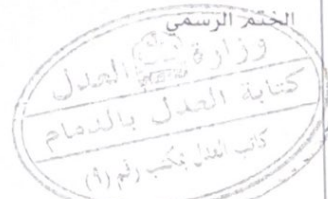 الختم الرسمي
وزارة العدل
كتابة العدل بالدمام
كاتب العدل بمكتب رقم (٩)